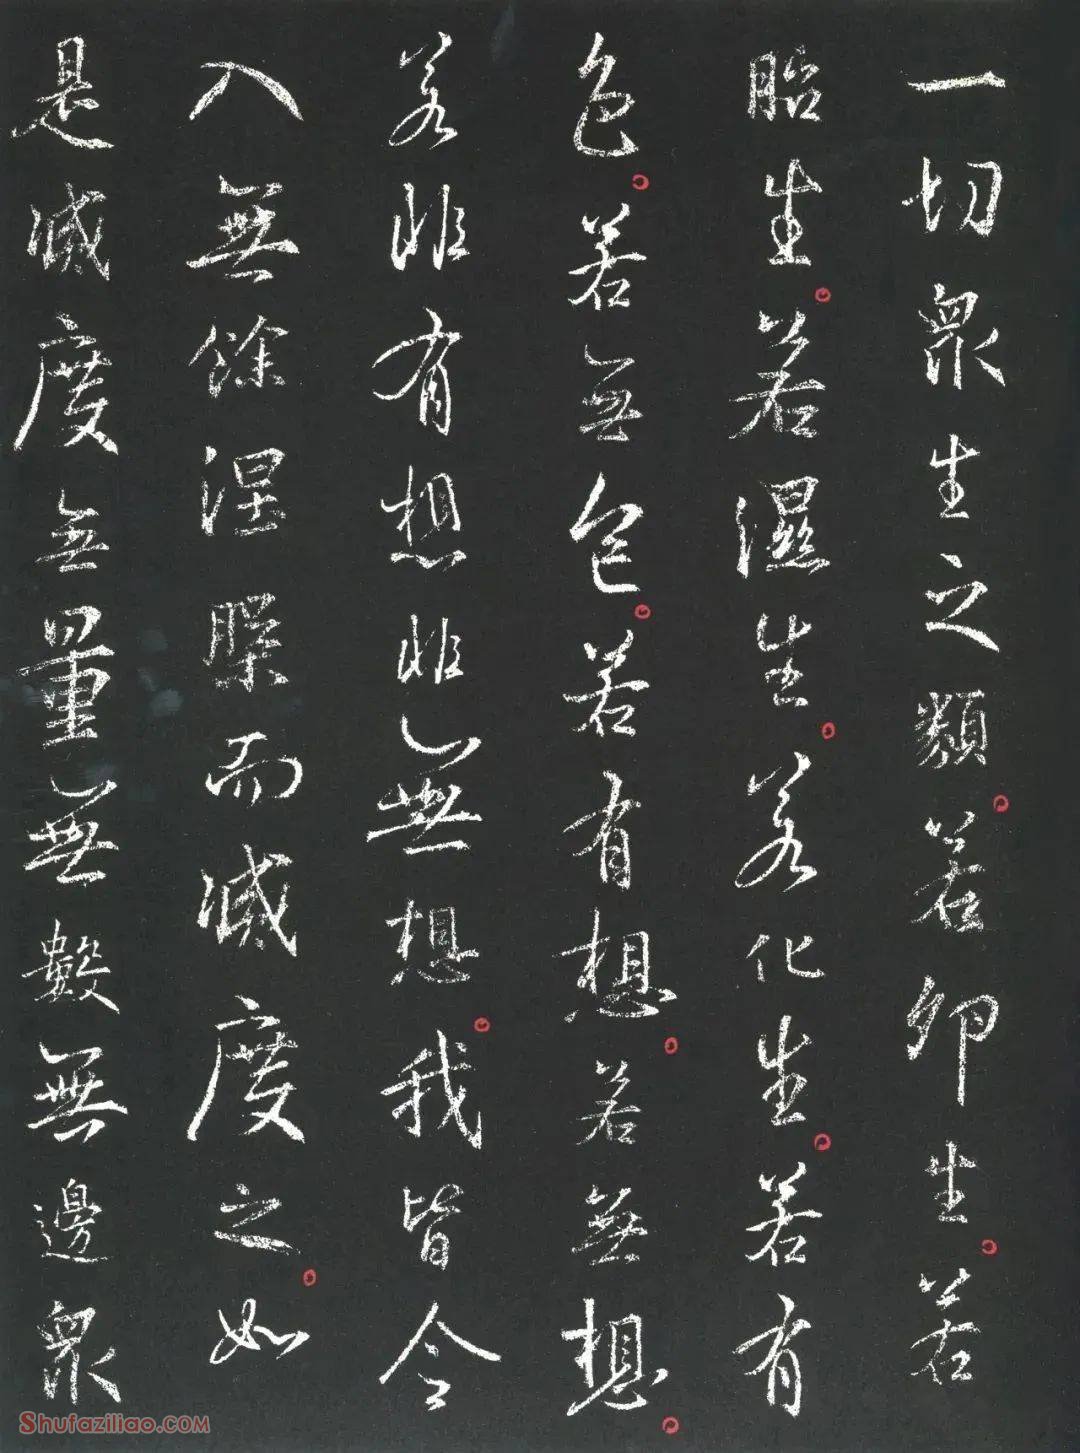 一切衆生之類若卵生若
胎生若濕生若化生若有
色若無色若有想若無想
若非有想非無想我皆令
入無餘涅槃而滅度之如
是滅度無量無數無邊衆
Shufaziliao.COM